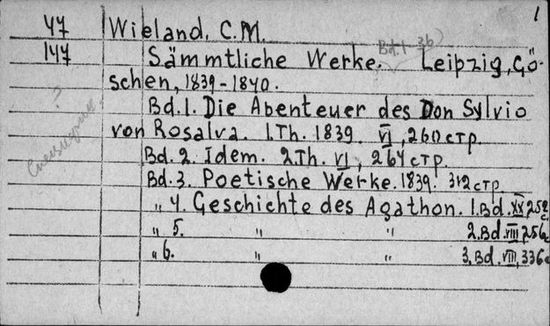 1
47 Wieland, C.M.
147 Sämmtliche Werke. Bd.1-36) Leipzig, Gö-
schen, 1839-1840.
Bd.1. Die Abenteuer des Don Sylvio
von Rosalva. 1.Th. 1839. VI, 260 стр.
Bd. 2. Idem. 2Th. VI, 264 стр.
Bd. 3. Poetische Werke. 1839. 312 стр.
„ 4. Geschichte des Agathon. 1.Bd. XX 252 с
„ 5. „ „ 2.Bd. VIII, 256
„ 6. „ „ 3.Bd. VIII, 336 с
?